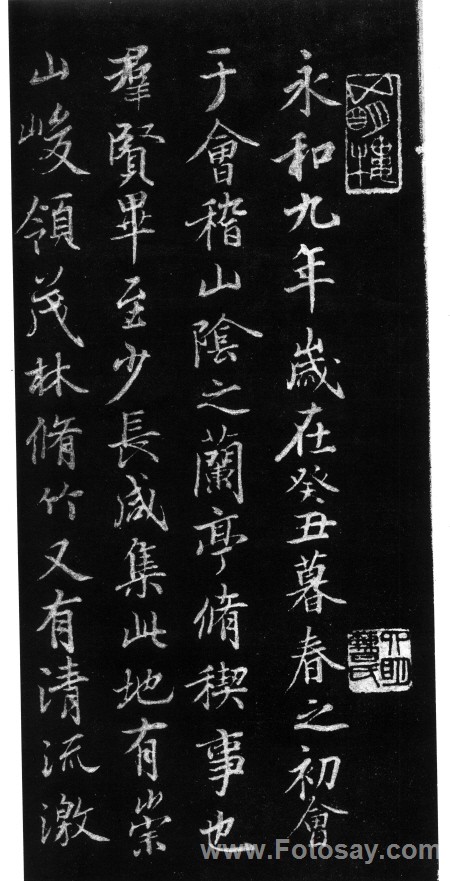 永和九年歲在癸丑暮春之初會
于會稽山陰之蘭亭脩稧事也
羣賢畢至少長咸集此地有崇
山峻領茂林脩竹又有清流激
www.Fotosay.com